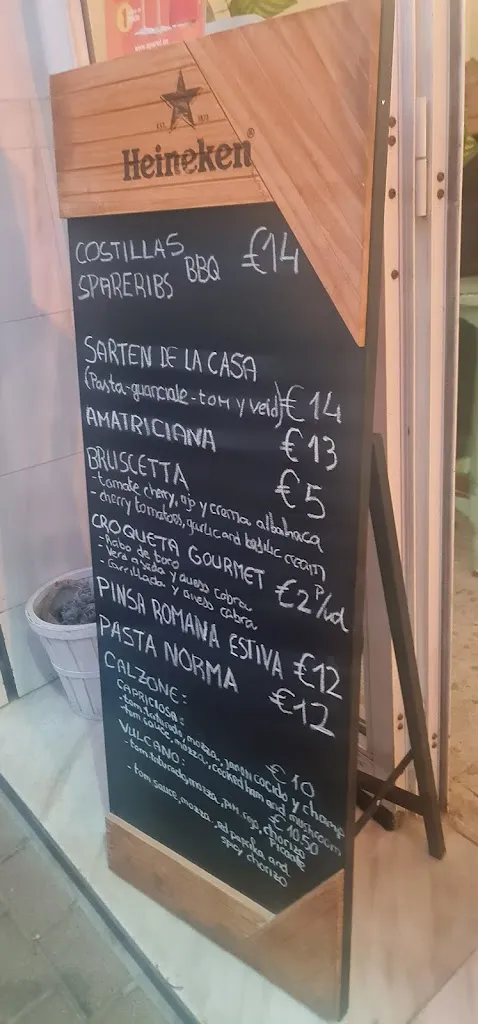 EST. 1873
Heineken®
COSTILLAS
SPARERIBS BBQ €14
SARTEN DE LA CASA
(Pasta-guanciale-tom y verd) €14
AMATRICIANA €13
BRUSCETTA €5
- tomate cherry, ajo y crema albahaca
- cherry tomatoes, garlic and basilic cream
CROQUETA GOURMET €2 P/ud
- Rabo de toro
- Verd asada y queso cabra
- Carrillada y queso cabra
PINSA ROMANA ESTIVA €12
PASTA NORMA €12
CALZONE:
CAPRICIOSA: €10
- tom. triturado, mozza, jamon cocido y champ
- tom sauce, mozza, cooked ham and mushroom
VULCANO: €10.50
- tom. triturado, mozza, pim rojo, chorizo picante
- tom sauce, mozza, red paprika and
spicy chorizo